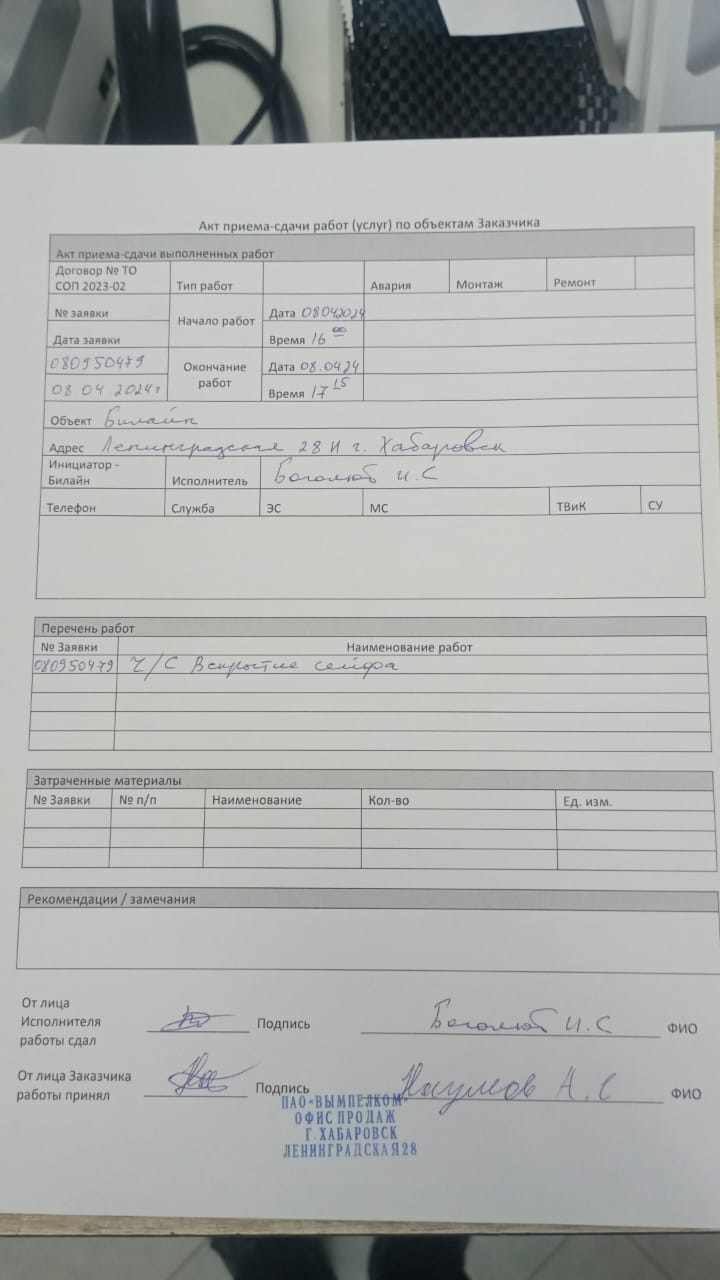 Акт приема-сдачи работ (услуг) по объектам Заказчика
Акт приема-сдачи выполненных работ
Договор № ТО СОП 2023-02 Тип работ Авария Монтаж Ремонт
№ заявки Начало работ Дата 08042024
Дата заявки Время 16 00
080950479 Окончание работ Дата 08.04.24
08 04 2024г Время 17 15
Объект Билайн
Адрес Ленинградская 28 И г. Хабаровск
Инициатор - Билайн Исполнитель Боголюб И.С
Телефон Служба ЭС МС ТВиК СУ
Перечень работ
№ Заявки Наименование работ
080950479 Ч/С Вскрытие сейфа
Затраченные материалы
№ Заявки № п/п Наименование Кол-во Ед. изм.
Рекомендации / замечания
От лица
Исполнителя Подпись Боголюб И.С ФИО
работы сдал
От лица Заказчика Подпись Наумов А.С ФИО
работы принял
ПАО «ВЫМПЕЛКОМ»
ОФИС ПРОДАЖ
Г. ХАБАРОВСК
ЛЕНИНГРАДСКАЯ 28